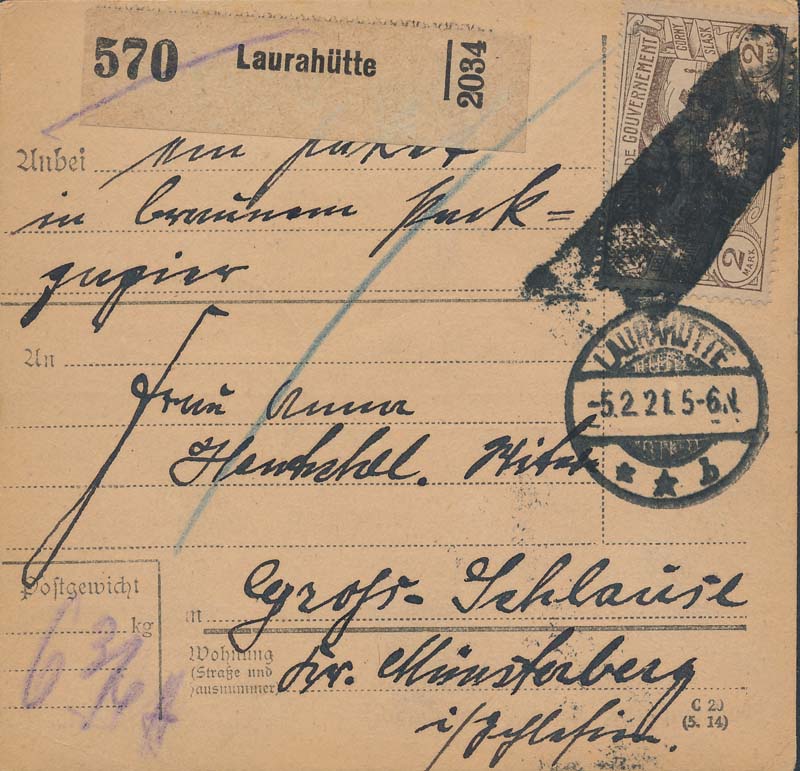 570 Laurahütte 2034
DE GOUVERNEMENT
GORNY
SLASK
2
2
MARK
Anbei ein Paket
in braunem Pack=
papier
An
LAURAHÜTTE
-5.2.21.5-6.N
* * b
Frau Anna
Postgewicht
kg
in Gross-Schlause
Wohnung
(Straße und
Hausnummer)
Kr. Münsterberg
i/Schlesien.
C 20
(5. 14)